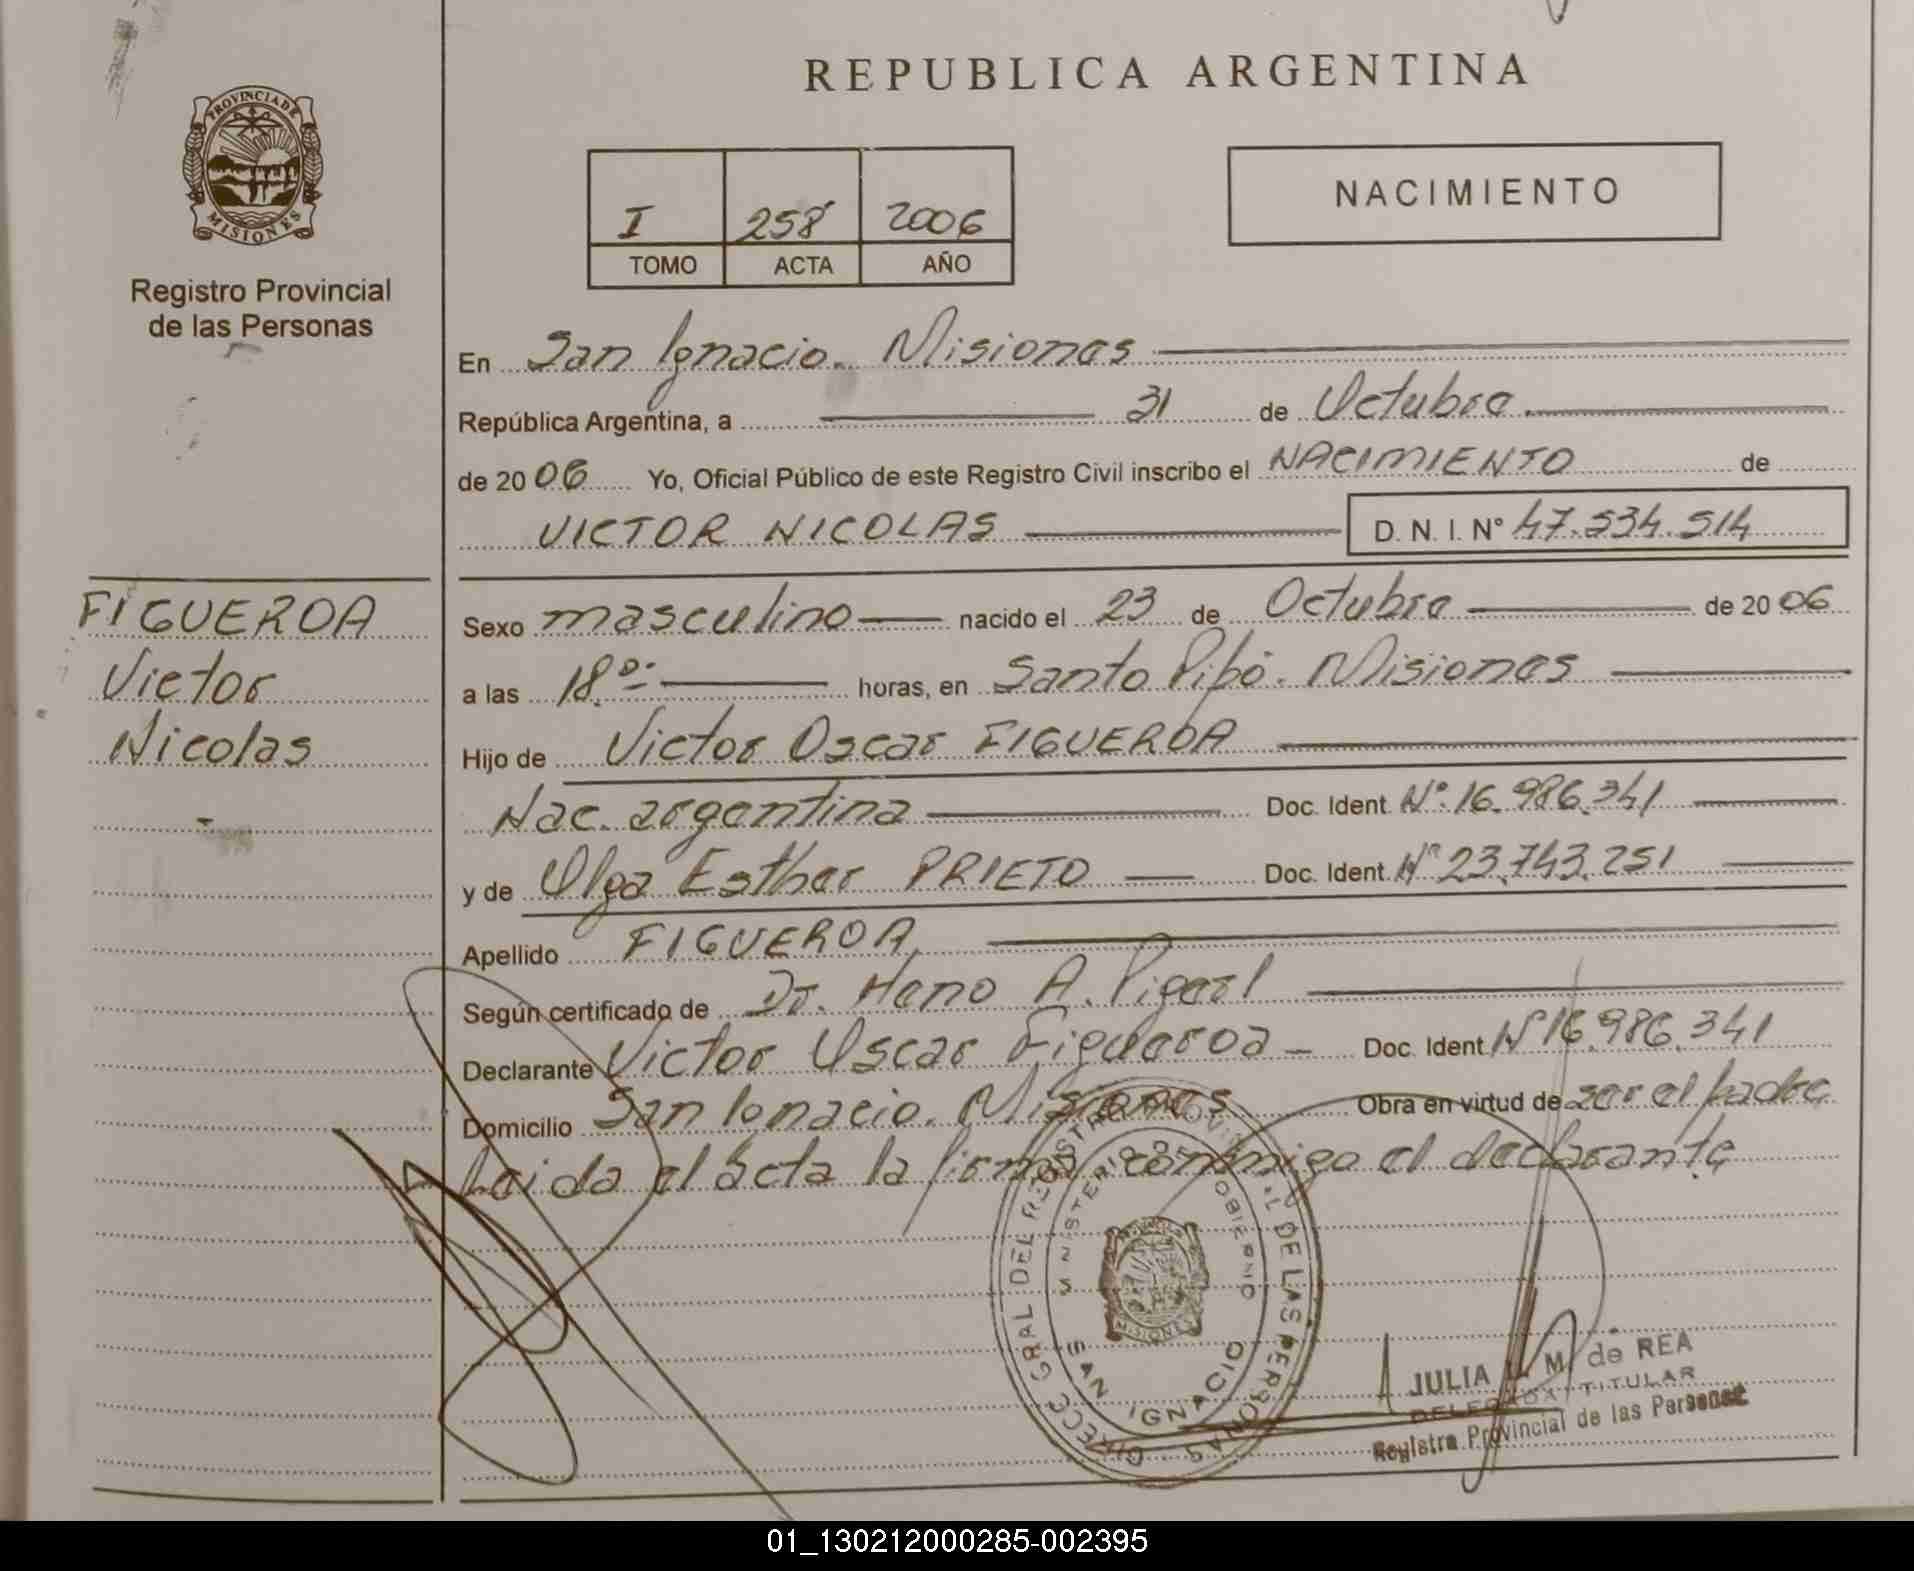 REPUBLICA ARGENTINA
PROVINCIA DE
MISIONES
Registro Provincial
de las Personas
I 258 2006
TOMO ACTA AÑO
NACIMIENTO
En San Ignacio. Misiones
República Argentina, a 31 de Octubre
de 2006 Yo, Oficial Público de este Registro Civil inscribo el NACIMIENTO de
VICTOR NICOLAS D. N. I. N° 47.534.514
FIGUEROA
Victor
Nicolas
Sexo masculino nacido el 23 de Octubre de 2006
a las 18.º horas, en Santo Pipó. Misiones
Hijo de Victor Oscar FIGUEROA
Nac. argentina Doc. Ident. Nº 16.986.341
y de Olga Esther PRIETO Doc. Ident. Nº 23.743.251
Apellido FIGUEROA
Según certificado de Dr. Hano A.
Declarante Victor Oscar Figueroa Doc. Ident. Nº 16.986.341
Domicilio San Ignacio. Misiones Obra en virtud de ser el padre
Leida el acta la firma conmigo el declarante
DIRECC GRAL DEL REGISTRO PROVINCIAL DE LAS PERSONAS
MINISTERIO DE GOBIERNO
MISIONES
SAN IGNACIO
JULIA M. de REA
DELEGADA TITULAR
Registro Provincial de las Personas
01_130212000285-002395